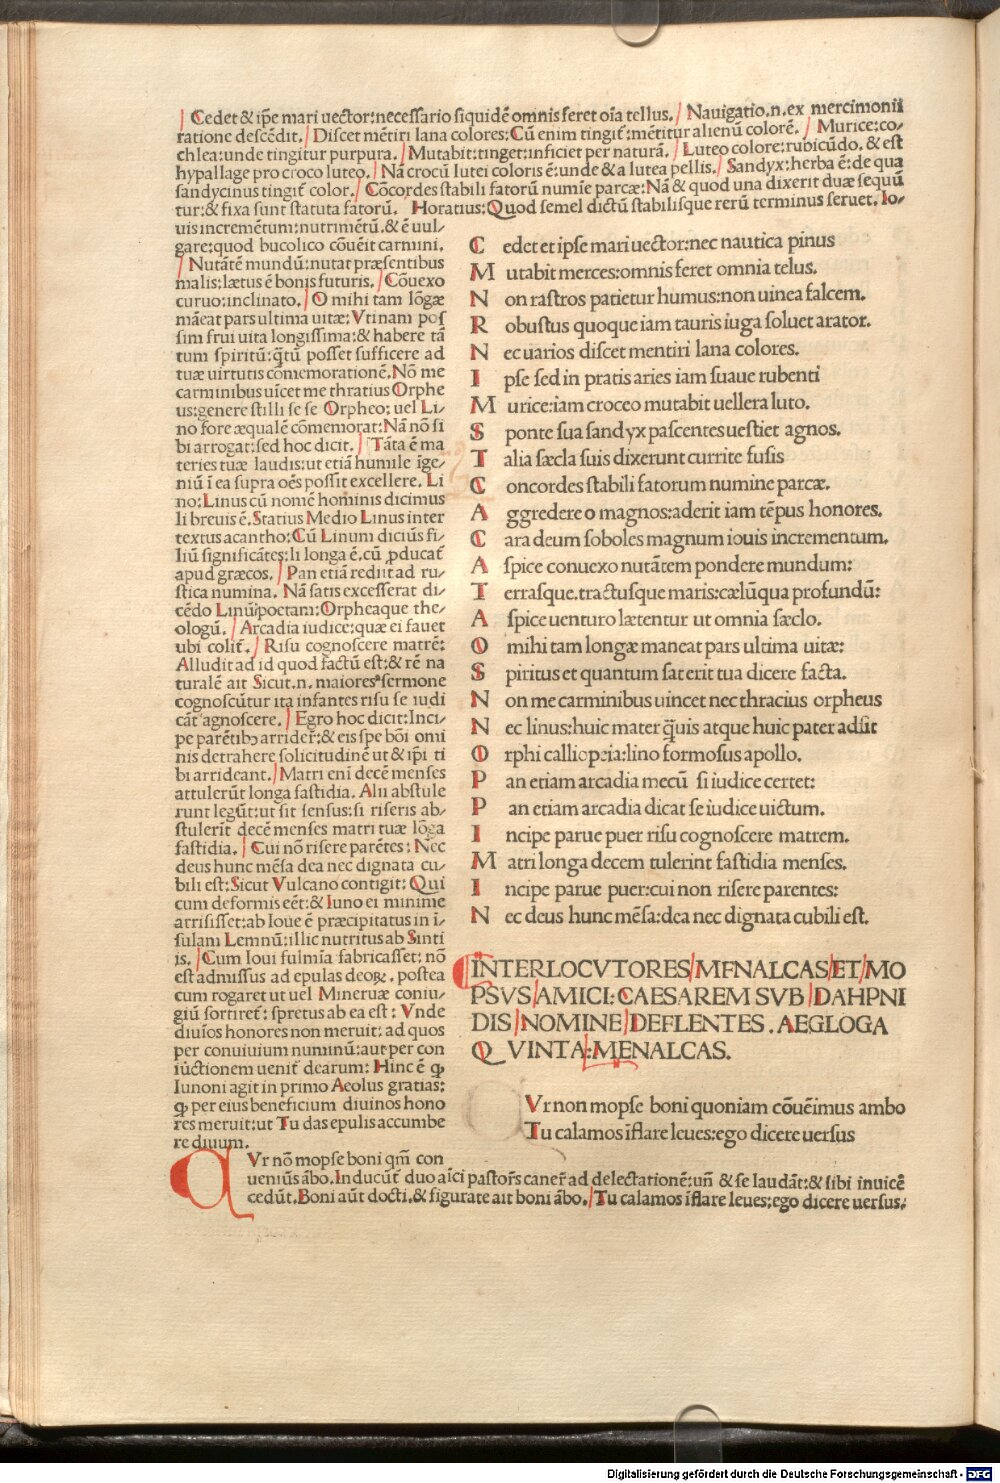 Cedet & ip̄e mari uector: necessario siquidē omnis feret oīa tellus. Nauigatio .n. ex mercimonii
ratione descēdit. Discet mētiri lana colores: Cū enim tingit᷑: mētitur alienū colorē. Murice: co-
chlea: unde tingitur purpura. Mutabit: tinget: inficiet per naturā. Luteo colore: rubicūdo. & est
hypallage pro croco luteo. Nā crocū lutei coloris ē: unde & a lutea pellis. Sandyx: herba ē: de qua
sandycinus tingit᷑ color. Cōcordes stabili fatorū numīe parcæ: Nā & quod una dixerit duæ sequū
tur: & fixa sunt statuta fatorū. Horatius: Quod semel dictū stabilisque rerū terminus seruet. Io-
uis incremētum: nutrimētū. & ē uul-
gare: quod bucolico cōuēit carmini.
Nutātē mundū: nutat præsentibus
malis: lætus ē bonis futuris. Cōuexo
curuo: inclinato. O mihi tam lōgæ
māeat pars ultima uitæ: Vtinam pos
sim frui uita longissima: & habere tā
tum spiritū: q̄tū posset sufficere ad
tuæ uirtutis cōmemorationē. Nō me
carminibus uīcet me thratius Orphe
us: genere stilli se se Orpheo: uel Li-
no fore æqualē cōmemorat: Nā nō si
bi arrogat: sed hoc dicit. Tāta ē ma
teries tuæ laudis: ut etiā humile īge-
niū ī ea supra oēs possit excellere. Li
no: Linus cū nomē hominis dicimus
li breuis ē. Statius Medio Linus inter
textus acantho: Cū Linum diciūs fi-
liū significātes: li longa ē. cū ꝓducat᷑
apud græcos. Pan etiā rediit ad ru-
stica numina. Nā satis excesserat di-
cēdo Linū poetam: Orpheaque the-
ologū. Arcadia iudice: quæ ei fauet
ubi colit᷑. Risu cognoscere matrē:
Alludit ad id quod factū est: & rē na
turalē ait Sicut .n. maiores sermone
cognoscūtur ita infantes risu se iudi
cāt agnoscere. Egro hoc dicit: Inci-
pe parētibꝫ arrider᷑: & eis spe bōi omi
nis detrahere solicitudinē ut & ip̄i ti
bi arrideant. Matri enī decē menses
attulerūt longa fastidia. Alii abstule
runt legūt: ut sit sensus: si riseris ab-
stulerit decē menses matri tuæ lōga
fastidia. Cui nō risere parētes: Nec
deus hunc mēsa dea nec dignata cu-
bili est: Sicut Vulcano contigit: Qui
cum deformis eēt: & Iuno ei minime
arrisisset: ab Ioue ē præcipitatus in ī-
sulam Lemnū: illic nutritus ab Sinti
is. Cum Ioui fulmīa fabricasset: nō
est admissus ad epulas deoꝝ. postea
cum rogaret ut uel Mineruæ coniu-
giū sortiret᷑: spretus ab ea est: Vnde
diuīos honores non meruit: ad quos
per conuiuium numinū: aut per con
iūctionem uenit᷑ dearum: Hinc ē ꝙ
Iunoni agit in primo Aeolus gratias:
ꝙ per eius beneficium diuinos hono
res meruit: ut Tu das epulis accumbe
re diuum.
Cedet et ipse mari uector: nec nautica pinus
Mutabit merces: omnis feret omnia telus.
Non rastros patietur humus: non uinea falcem.
Robustus quoque iam tauris iuga soluet arator.
Nec uarios discet mentiri lana colores.
Ipse sed in pratis aries iam suaue rubenti
Murice: iam croceo mutabit uellera luto.
Sponte sua sandyx pascentes uestiet agnos.
Talia sæcla suis dixerunt currite fusis
Concordes stabili fatorum numine parcæ.
Aggredere o magnos: aderit iam tēpus honores.
Cara deum soboles magnum iouis incrementum.
Aspice conuexo nutātem pondere mundum:
Terrasque. tractusque maris: cælūqua profundū:
Aspice uenturo lætentur ut omnia sæclo.
O mihi tam longæ maneat pars ultima uitæ:
Spiritus et quantum sat erit tua dicere facta.
Non me carminibus uincet nec thracius orpheus
Nec linus: huic mater q̄uis atque huic pater adsit
Orphi calliopeia: lino formosus apollo.
Pan etiam arcadia mecū si iudice certet:
Pan etiam arcadia dicat se iudice uictum.
Incipe parue puer risu cognoscere matrem.
Matri longa decem tulerint fastidia menses.
Incipe parue puer: cui non risere parentes:
Nec deus hunc mēsa: dea nec dignata cubili est.
INTERLOCVTORES MENALCAS ET MO
PSVS AMICI: CAESAREM SVB DAHPNI
DIS NOMINE DEFLENTES. AEGLOGA
QVINTA: MENALCAS.
Vr non mopse boni quoniam cōuēimus ambo
Tu calamos īflare leues: ego dicere uersus
Vr nō mopse boni qm̄ con
uenius ābo. Inducūt᷑ duo aīci pastor᷑s caner᷑ ad delectationē: uñ & se laudāt: & sibi inuicē
cedūt. Boni aūt docti. & figurate ait boni ābo. Tu calamos īflare leues: ego dicere uersus:
Digitalisierung gefördert durch die Deutsche Forschungsgemeinschaft - DFG